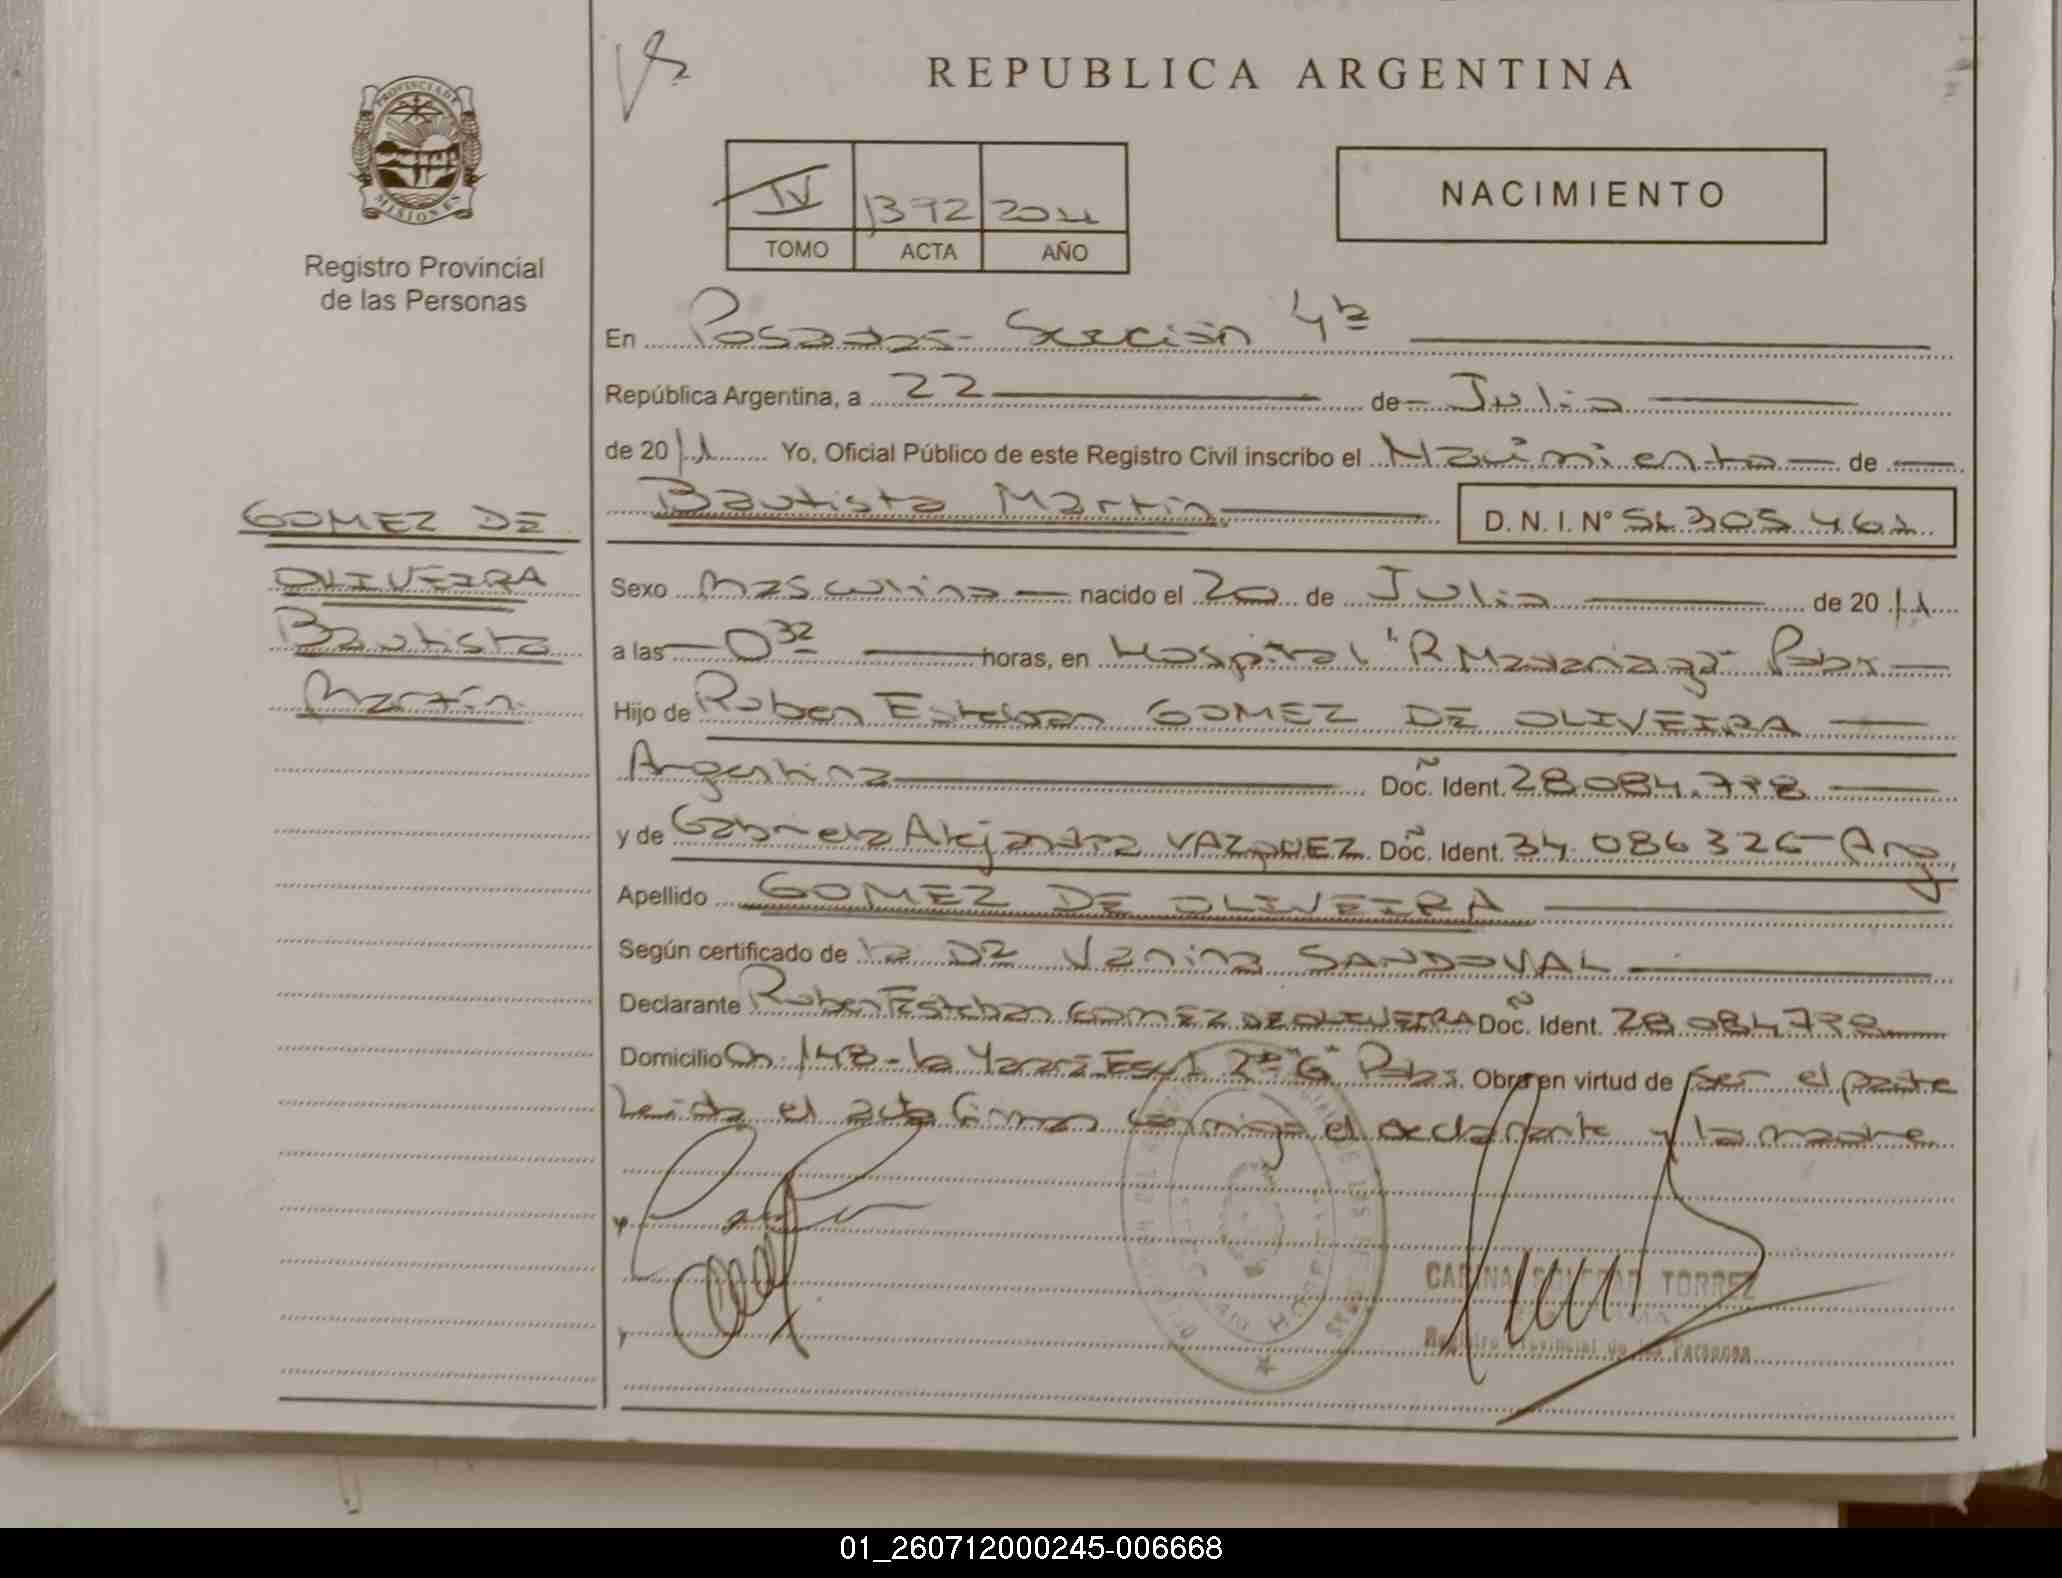 REPUBLICA ARGENTINA
PROVINCIA DE
MISIONES
Registro Provincial
de las Personas
IV 1392 2011
TOMO ACTA AÑO
NACIMIENTO
En Posadas - Sección 4ta
República Argentina, a 22 de Julio
de 2011 Yo, Oficial Público de este Registro Civil inscribo el Nacimiento de
Bautista Martín D. N. I. N° 51.305.461
GOMEZ DE
OLIVEIRA
Bautista
Martín
Sexo Masculino nacido el 20 de Julio de 2011
a las 0 32 horas, en Hospital "R Madariaga" Pdas
Hijo de Ruben Esteban GOMEZ DE OLIVEIRA
Argentina Doc. Ident. 28.084.738
y de Gabriela Alejandra VAZQUEZ Doc. Ident. 34.086.326 - Arg
Apellido GOMEZ DE OLIVEIRA
Según certificado de la DRA Vanina SANDOVAL
Declarante Ruben Esteban GOMEZ DE OLIVEIRA Doc. Ident. 28.084.738
Domicilio Ch. 148 - 2° "G" Pdas. Obra en virtud de ser el padre
Leida el acta firman conmigo el declarante y la madre
TORREZ
Registro Provincial de las Personas
01_260712000245-006668